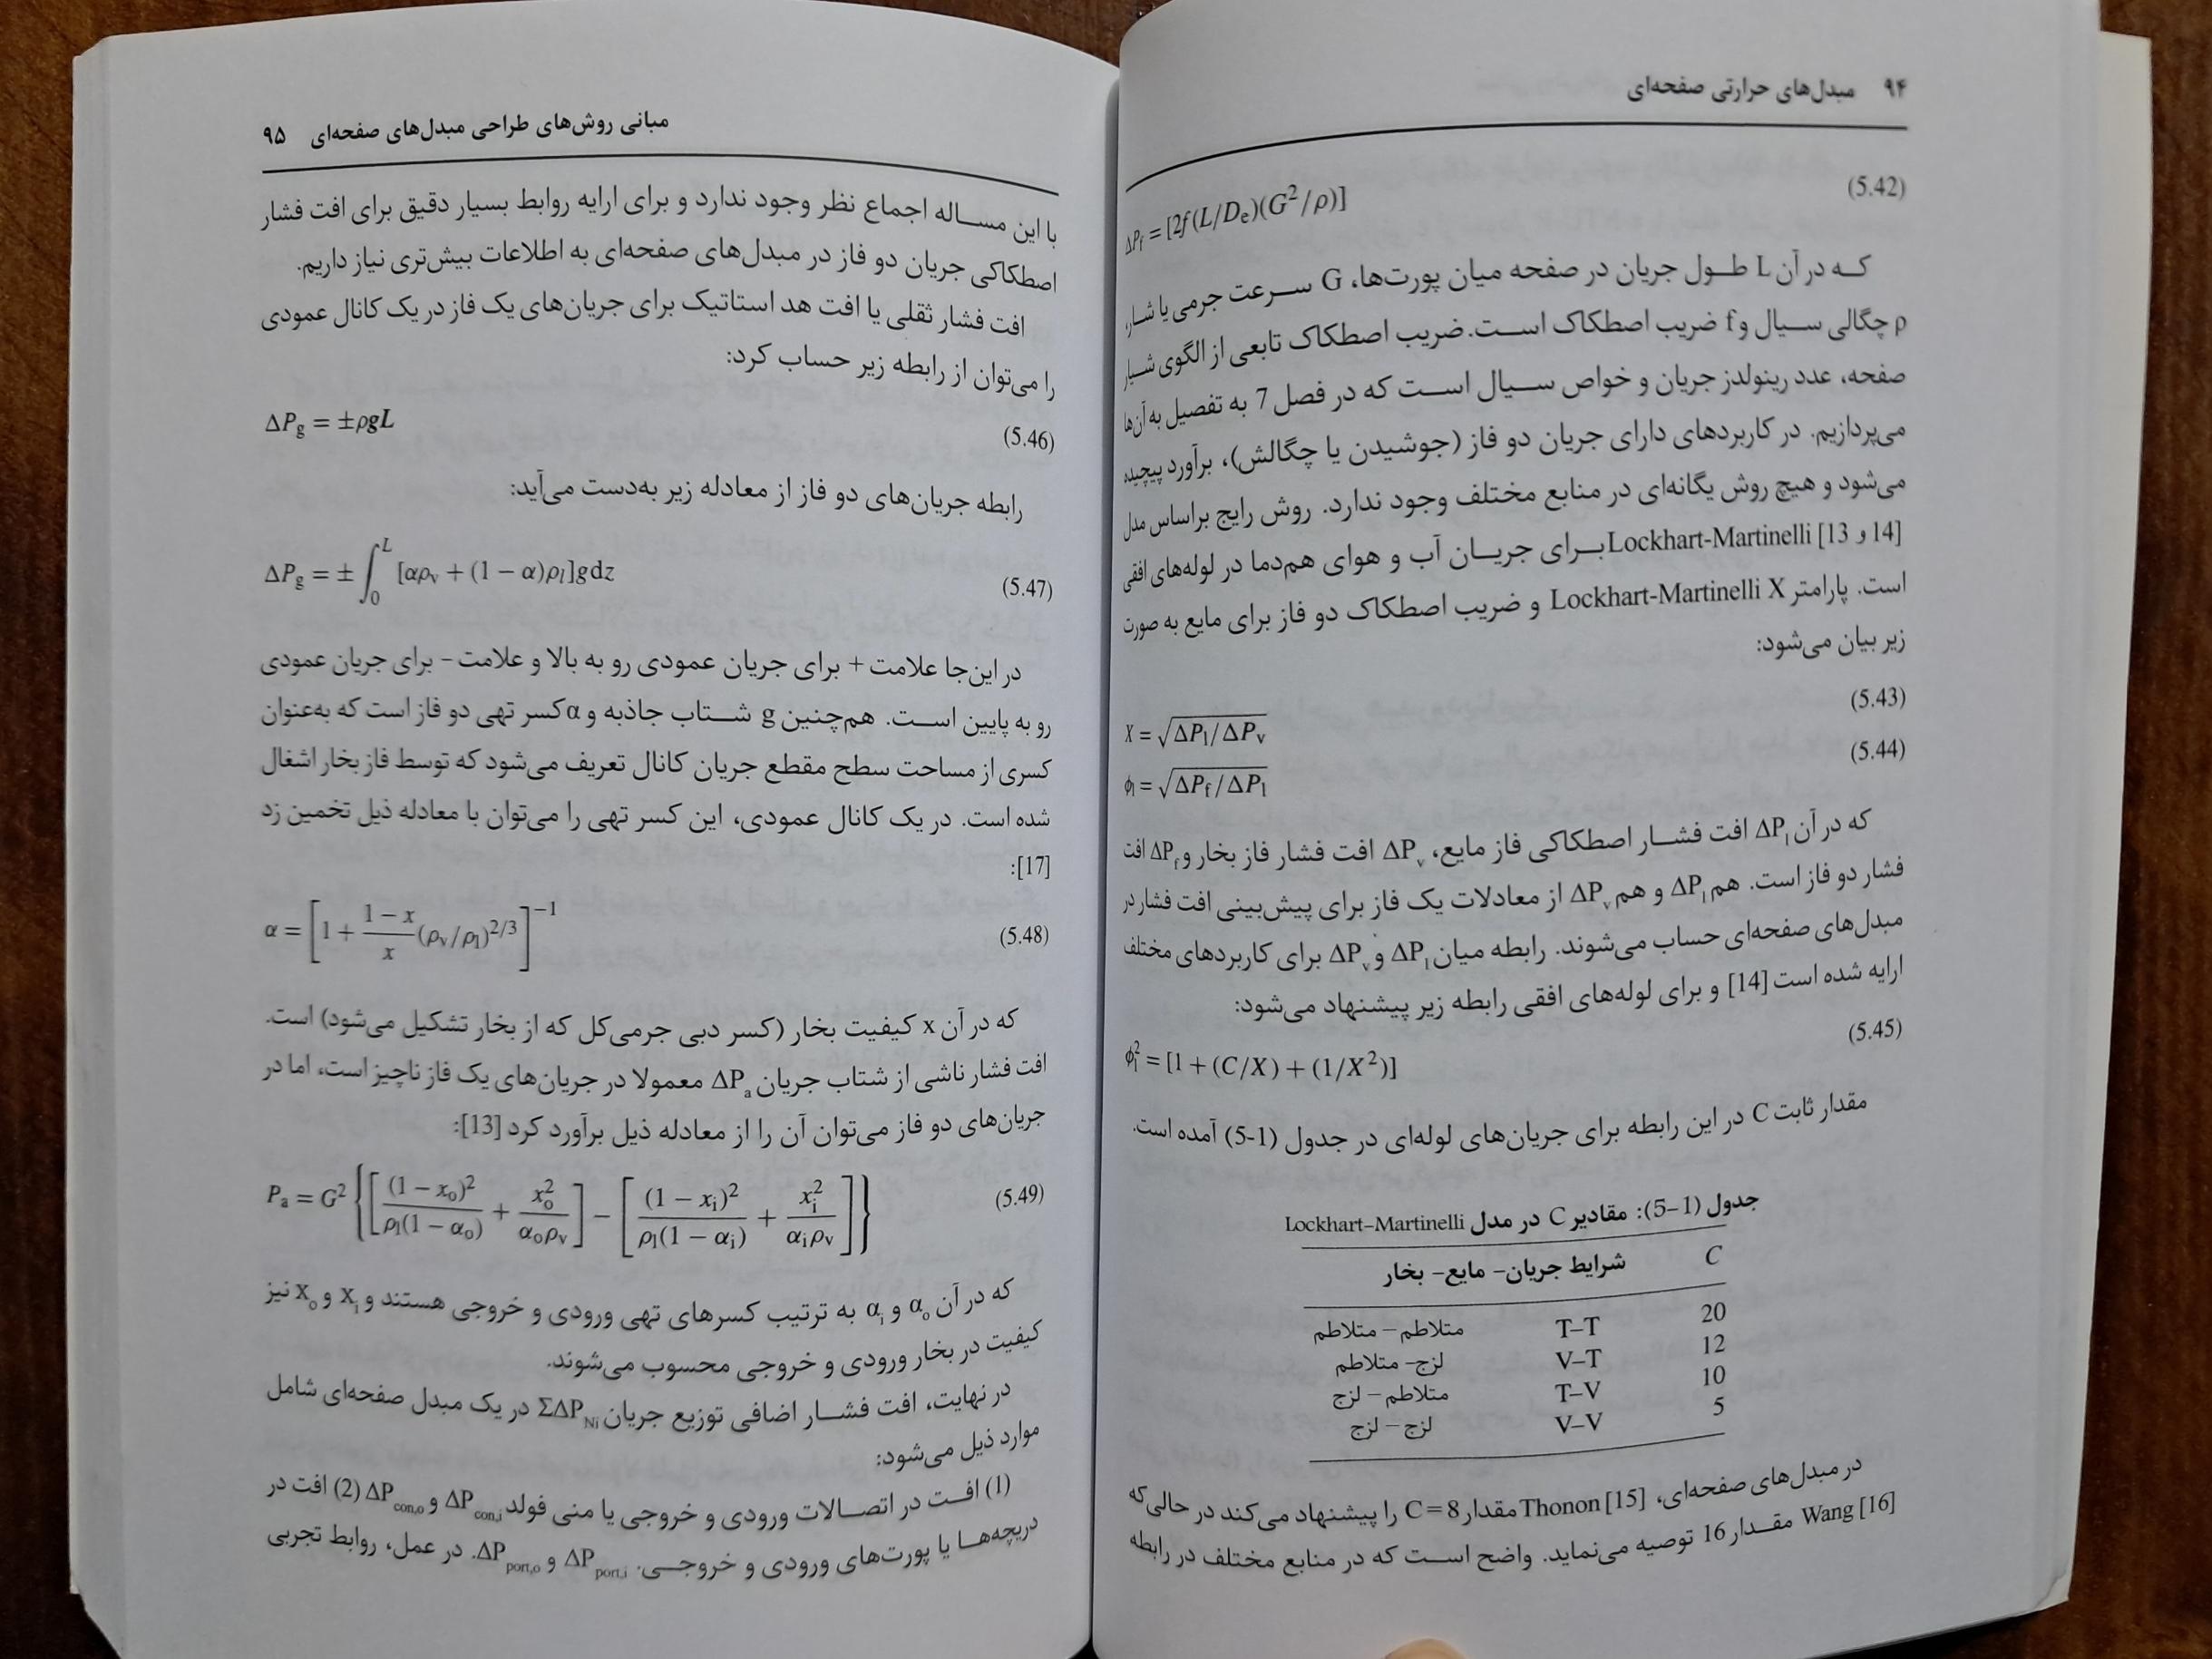 ۹۴ مبدل‌های حرارتی صفحه‌ای
ΔP_f = [2f(L/D_e)(G²/ρ)] (5.42)
که در آن L طول جریان در صفحه میان پورت‌ها، G سرعت جرمی یا شار،
ρ چگالی سیال و f ضریب اصطکاک است. ضریب اصطکاک تابعی از الگوی شیار
صفحه، عدد رینولدز جریان و خواص سیال است که در فصل 7 به تفصیل به آن‌ها
می‌پردازیم. در کاربردهای دارای جریان دو فاز (جوشیدن یا چگالش)، برآورد پیچیده
می‌شود و هیچ روش یگانه‌ای در منابع مختلف وجود ندارد. روش رایج براساس مدل
Lockhart-Martinelli [13 و 14] برای جریان آب و هوای هم‌دما در لوله‌های افقی
است. پارامتر Lockhart-Martinelli X و ضریب اصطکاک دو فاز برای مایع به صورت
زیر بیان می‌شود:
X = √(ΔP_l/ΔP_v) (5.43)
ϕ_l = √(ΔP_f/ΔP_l) (5.44)
که در آن ΔP_l افت فشار اصطکاکی فاز مایع، ΔP_v افت فشار فاز بخار و ΔP_f افت
فشار دو فاز است. هم ΔP_l و هم ΔP_v از معادلات یک فاز برای پیش‌بینی افت فشار در
مبدل‌های صفحه‌ای حساب می‌شوند. رابطه میان ΔP_l و ΔP_v برای کاربردهای مختلف
ارایه شده است [14] و برای لوله‌های افقی رابطه زیر پیشنهاد می‌شود:
ϕ_l² = [1 + (C/X) + (1/X²)] (5.45)
مقدار ثابت C در این رابطه برای جریان‌های لوله‌ای در جدول (1-5) آمده است.
جدول (1-5): مقادیر C در مدل Lockhart-Martinelli
C شرایط جریان- مایع- بخار
20 T–T متلاطم – متلاطم
12 V–T لزج- متلاطم
10 T–V متلاطم – لزج
5 V–V لزج – لزج
در مبدل‌های صفحه‌ای، Thonon [15] مقدار C=8 را پیشنهاد می‌کند در حالی که
Wang [16] مقدار 16 توصیه می‌نماید. واضح است که در منابع مختلف در رابطه
مبانی روش‌های طراحی مبدل‌های صفحه‌ای ۹۵
با این مساله اجماع نظر وجود ندارد و برای ارایه روابط بسیار دقیق برای افت فشار
اصطکاکی جریان دو فاز در مبدل‌های صفحه‌ای به اطلاعات بیش‌تری نیاز داریم.
افت فشار ثقلی یا افت هد استاتیک برای جریان‌های یک فاز در یک کانال عمودی
را می‌توان از رابطه زیر حساب کرد:
ΔP_g = ±ρgL (5.46)
رابطه جریان‌های دو فاز از معادله زیر به‌دست می‌آید:
ΔP_g = ± ∫₀^L [αρ_v + (1 − α)ρ_l]gdz (5.47)
در این‌جا علامت + برای جریان عمودی رو به بالا و علامت - برای جریان عمودی
رو به پایین است. هم‌چنین g شتاب جاذبه و α کسر تهی دو فاز است که به‌عنوان
کسری از مساحت سطح مقطع جریان کانال تعریف می‌شود که توسط فاز بخار اشغال
شده است. در یک کانال عمودی، این کسر تهی را می‌توان با معادله ذیل تخمین زد
[17]:
α = [1 + (1−x)/x (ρ_v/ρ_l)^(2/3)]^(−1) (5.48)
که در آن x کیفیت بخار (کسر دبی جرمی کل که از بخار تشکیل می‌شود) است.
افت فشار ناشی از شتاب جریان ΔP_a معمولا در جریان‌های یک فاز ناچیز است، اما در
جریان‌های دو فاز می‌توان آن را از معادله ذیل برآورد کرد [13]:
P_a = G² {[(1 − x_o)²/(ρ_l(1 − α_o)) + x_o²/(α_oρ_v)] − [(1 − x_i)²/(ρ_l(1 − α_i)) + x_i²/(α_iρ_v)]} (5.49)
که در آن α_o و α_i به ترتیب کسرهای تهی ورودی و خروجی هستند و x_i و x_o نیز
کیفیت در بخار ورودی و خروجی محسوب می‌شوند.
در نهایت، افت فشار اضافی توزیع جریان ΣΔP_Ni در یک مبدل صفحه‌ای شامل
موارد ذیل می‌شود:
(1) افت در اتصالات ورودی و خروجی یا منی فولد ΔP_con,i و ΔP_con,o (2) افت در
دریچه‌ها یا پورت‌های ورودی و خروجی. ΔP_port,i و ΔP_port,o. در عمل، روابط تجربی